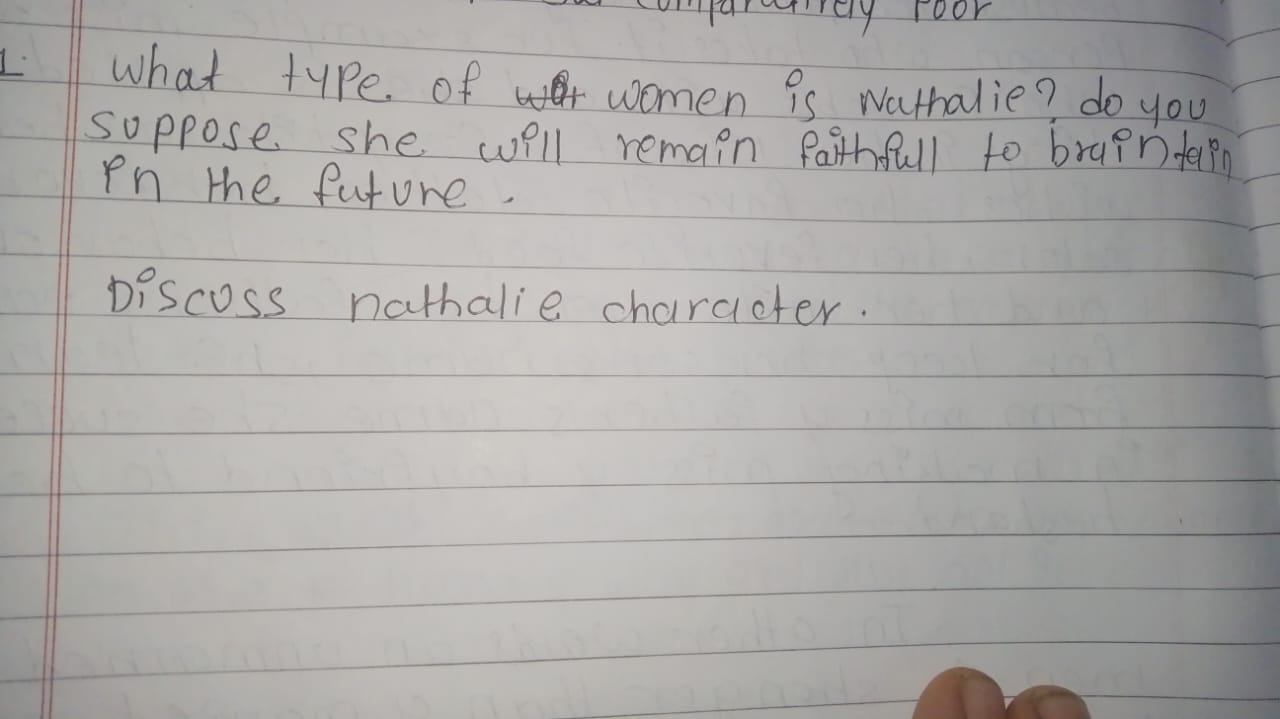 comparatively Poor
1. What type of women is Nathalie? do you
suppose she will remain faithfull to braintain
in the future.
Discuss nathalie character.